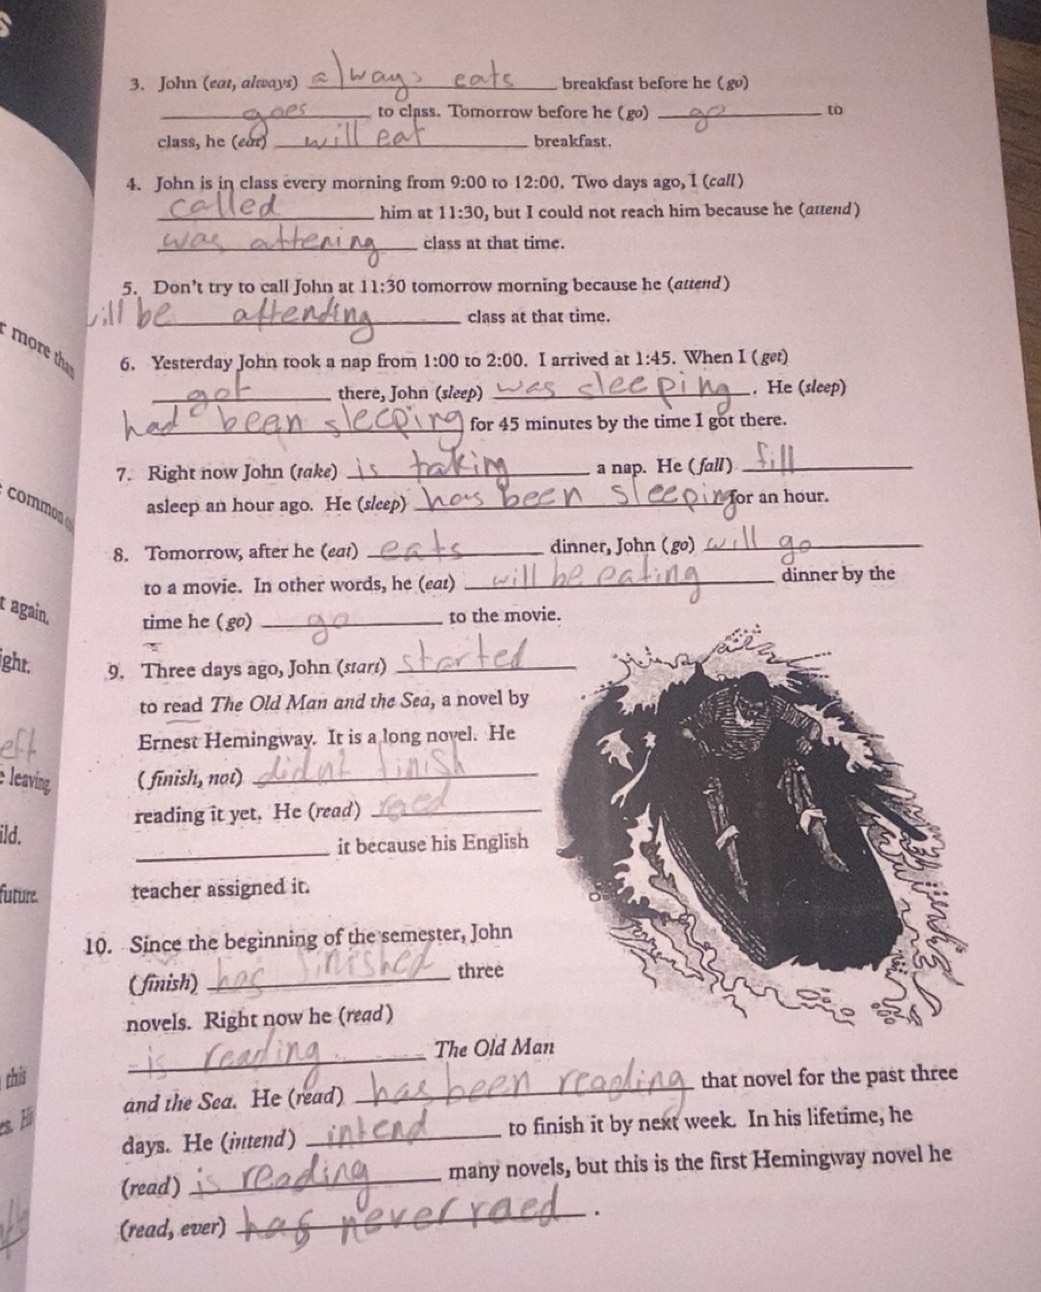 3. John (eat, always) always eats breakfast before he (go)
goes to class. Tomorrow before he (go) go to
class, he (eat) will eat breakfast.
4. John is in class every morning from 9:00 to 12:00. Two days ago, I (call)
called him at 11:30, but I could not reach him because he (attend)
was attening class at that time.
5. Don't try to call John at 11:30 tomorrow morning because he (attend)
ill be attending class at that time.
r more than
6. Yesterday John took a nap from 1:00 to 2:00. I arrived at 1:45. When I (get)
got there, John (sleep) was sleeping. He (sleep)
had been sleeping for 45 minutes by the time I got there.
7. Right now John (take) is taking a nap. He (fall) fill
common
asleep an hour ago. He (sleep) has been sleeping for an hour.
8. Tomorrow, after he (eat) eats dinner, John (go) will go
to a movie. In other words, he (eat) will be eating dinner by the
t again.
time he (go) go to the movie.
ight.
9. Three days ago, John (start) started
to read The Old Man and the Sea, a novel by
Ernest Hemingway. It is a long novel. He
eft
leaving
(finish, not) didnt finish
reading it yet. He (read) raed
ild.
it because his English
future.
teacher assigned it.
10. Since the beginning of the semester, John
(finish) has finished three
novels. Right now he (read)
is reading The Old Man
this
and the Sea. He (read) has been reading that novel for the past three
days. He (intend) intend to finish it by next week. In his lifetime, he
(read) is reading many novels, but this is the first Hemingway novel he
(read, ever) has never raed.